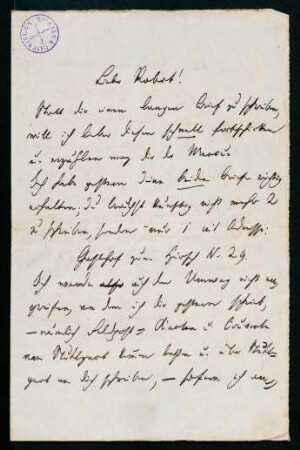 Liebe Robert!
Statt dir einen langen Brief zu schreiben,
will ich lieber diesen schnell fortschicken
u. erzählen mag dir die
Ich habe gestern deine beiden Briefe richtig
erhalten; du brauchst künftig nicht mehr 2
zu schreiben, sondern nur 1 mit Adresse:
Gasthof zum Hirsch N. 29.
Ich werde also auf den Umweg nicht
, von dem ich dir gestern schrieb,
– nämlich Feldpost= Karten u. Couverts
von Stuttgart kommen lassen u. über Stutt-
gart an dich schreiben, – sofern ich